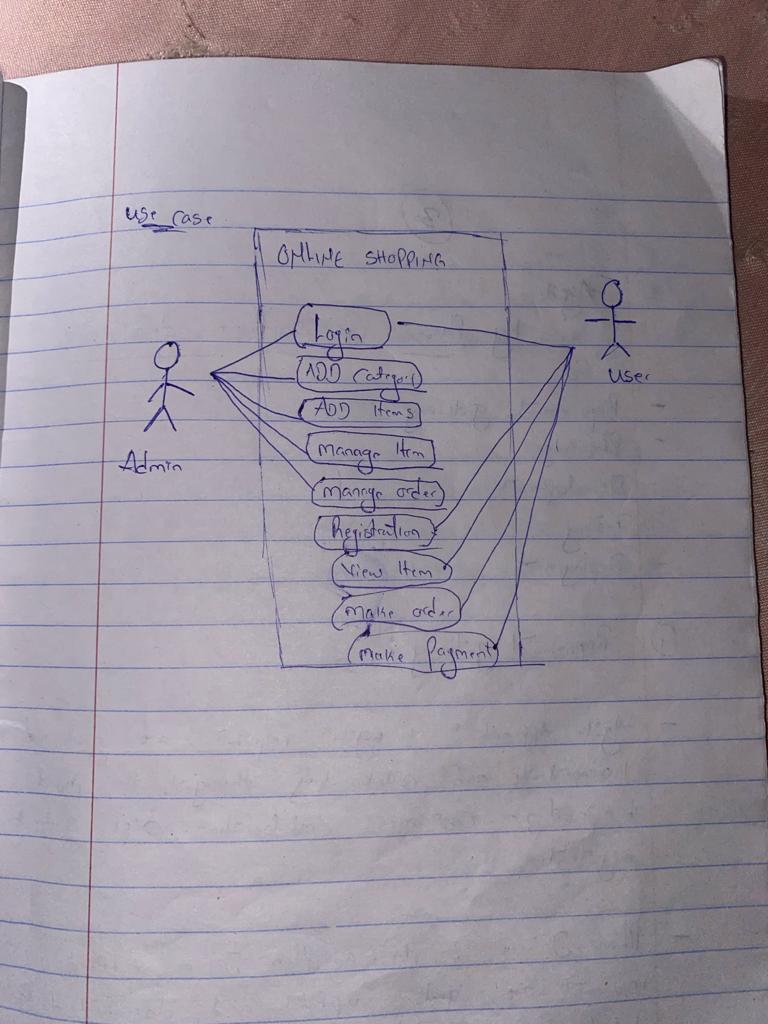 use case
ONLINE SHOPPING
Login
ADD Categori
ADD Items
Manage Item
manage order
Registration
View Item
Make order
Make Payment
Admin
User